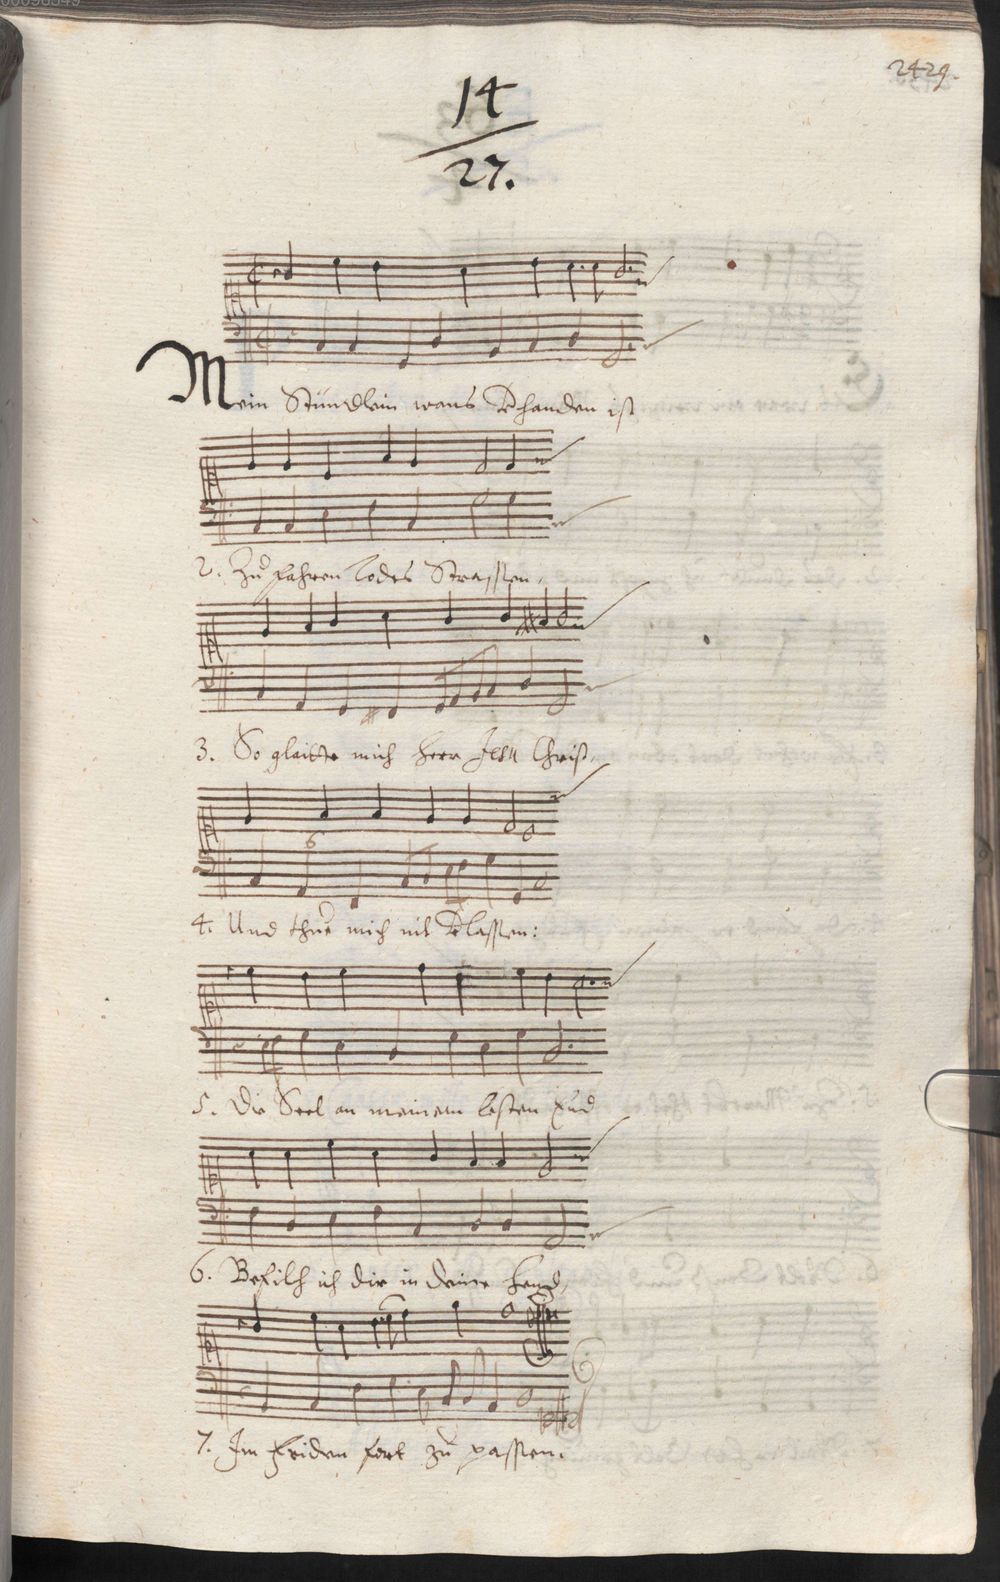 00098349
2429.
14
27.
Mein Stündlein wans vhanden ist
2. Zu fahren Todes Strassen,
3. So glaitte mich Herr Jesu Christ,
6
4. Und thue mich nit vlassen:
5. Die Seel an meinem lesten End
6. Befilch ich dir in deine Hend,
7. Im Friden fort zu passen.